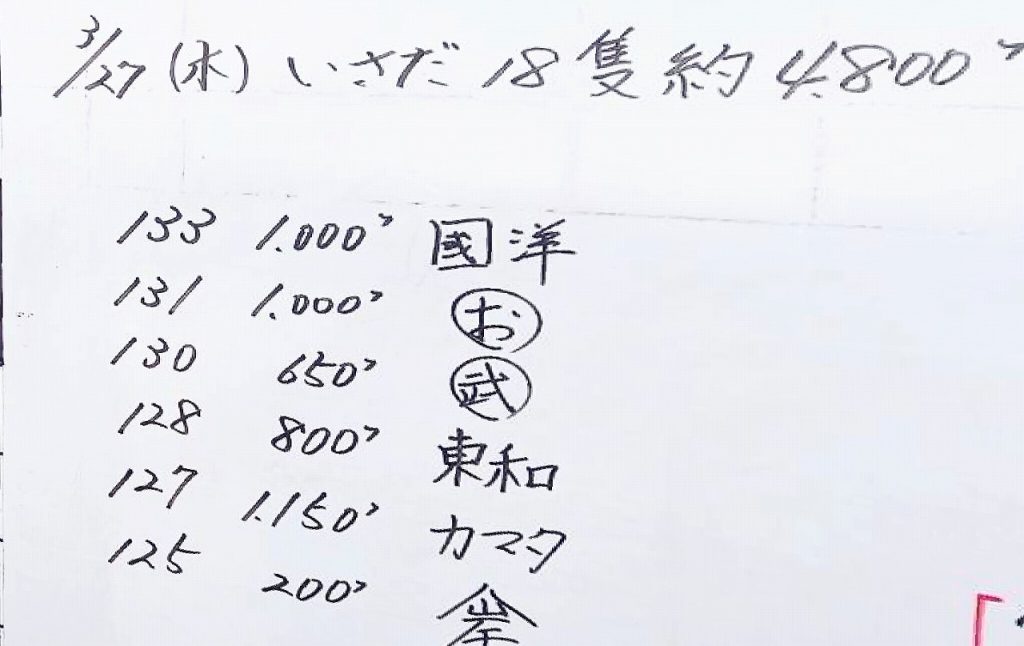 3/27(水) いさだ 18隻 約4.800〃
133 1.000〃 國洋
131 1.000〃 お
130 650〃 武
128 800〃 東和
127 1.150〃 カマタ
125 200〃